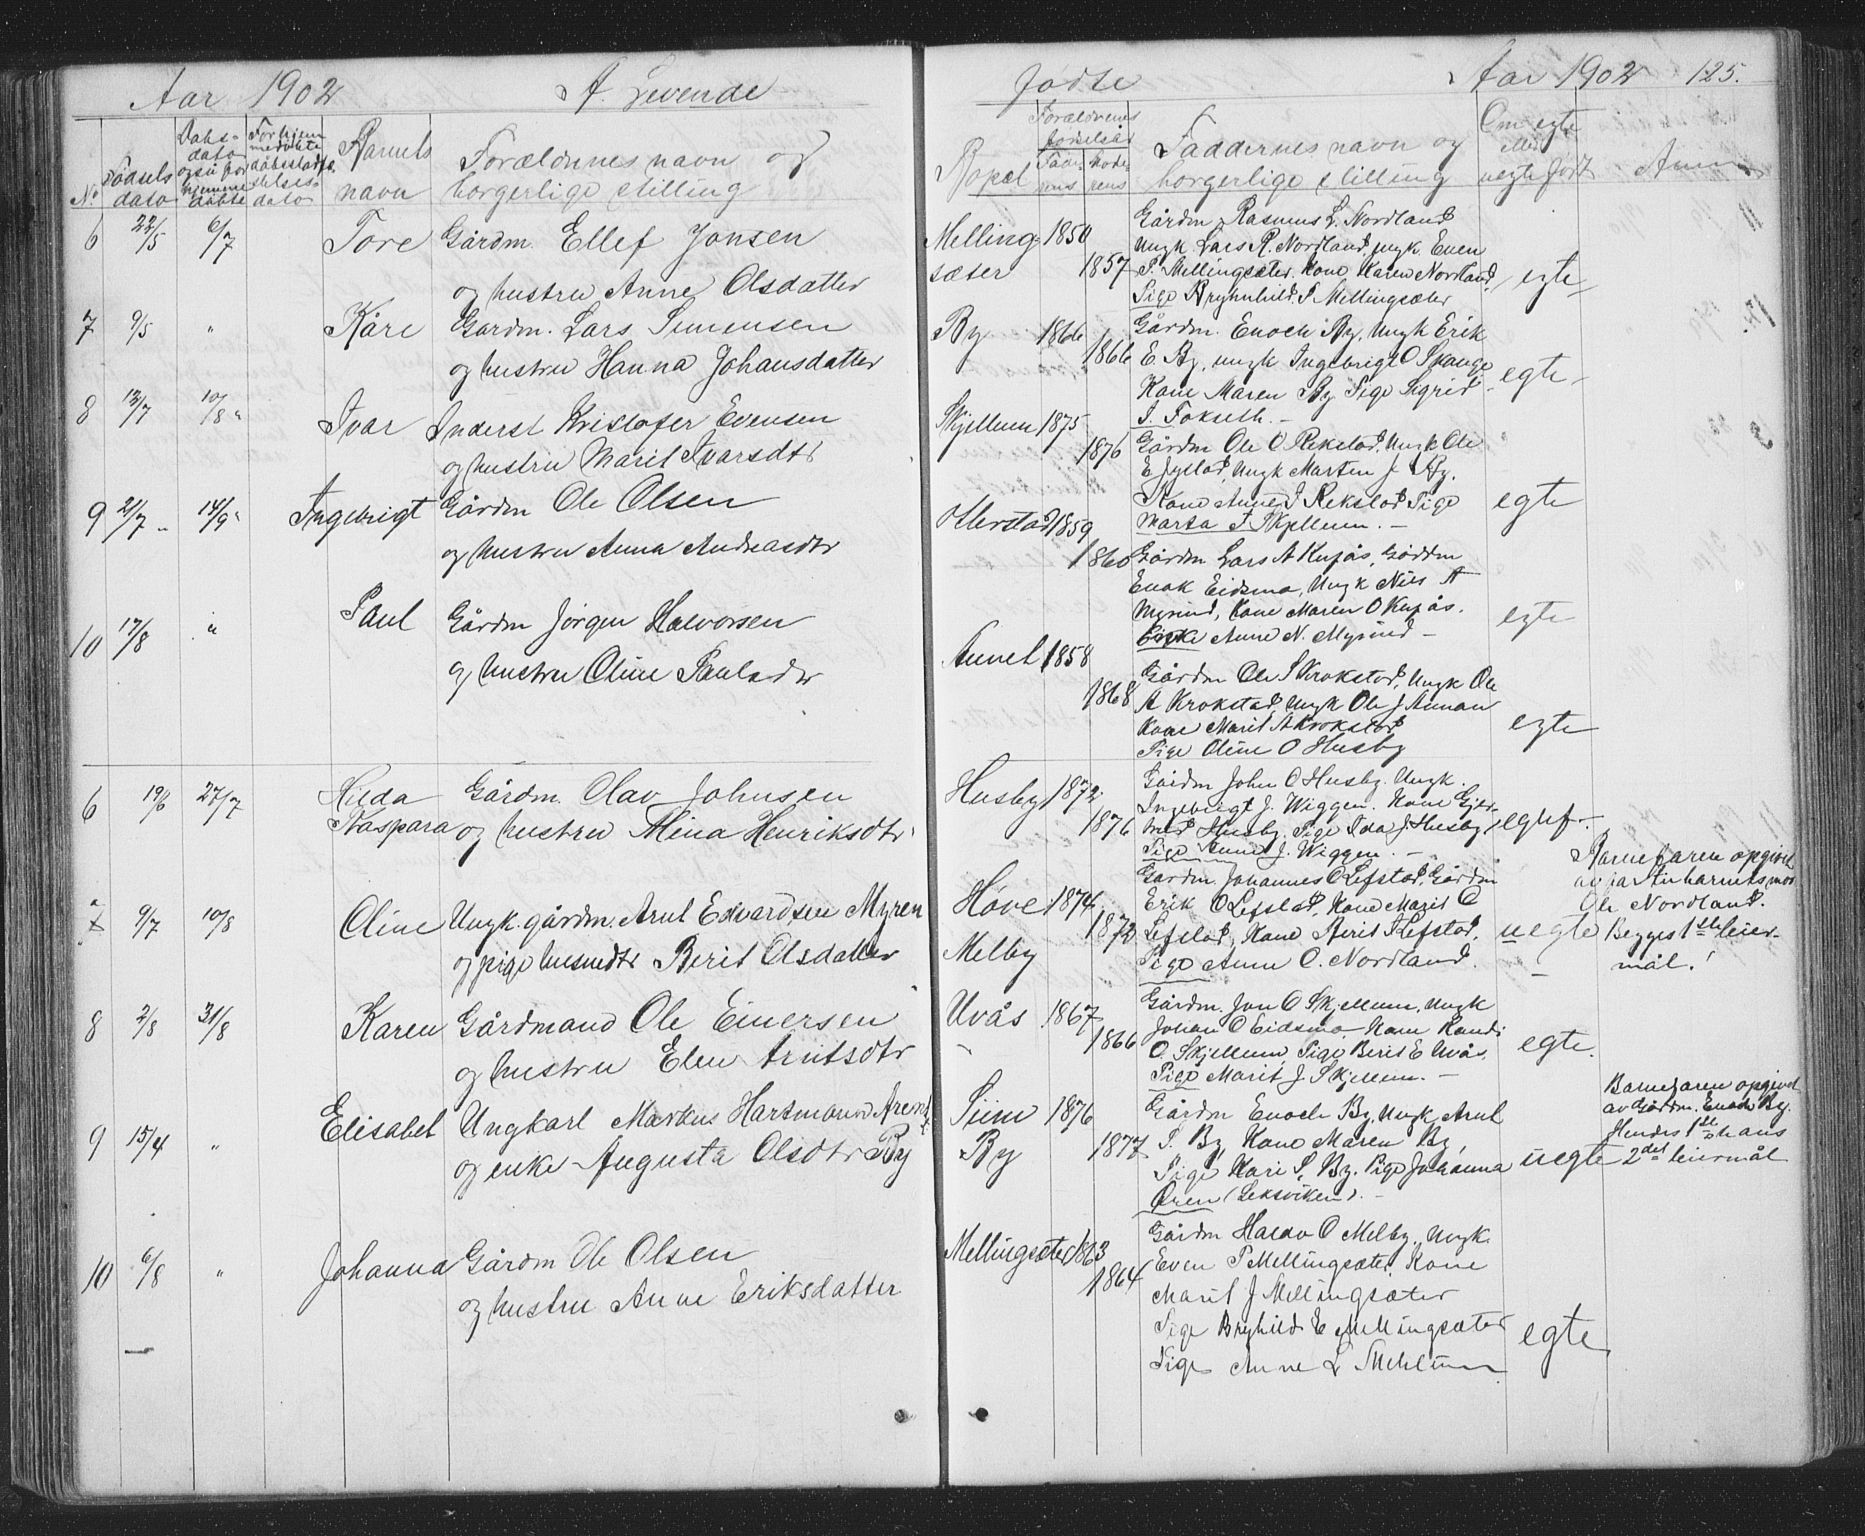 Aar 1902 A. Levende
No Fødsels dato
Dåbs- dato også for hjemme døbte
For hjem medøbte dåbsstadfæ stelses dato
Barnets navn
Forældrenes navn og borgerlige stilling
6 22/5 6/7 Tore Gårdm. Ellef Jonsen
og hustru Anne Olsdatter
7 9/5 " Kåre Gårdm. Lars Simensen
og hustru Hanna Johansdatter
8 13/7 10/8 " Ivar Inderst Kristofer Evensen
og hustru Marit Ivarsdtr
9 21/7 14/9 " Ingebrigt Gårdm Ole Olsen
og hustru Anna Andreasdtr
10 17/8 " Paul Gårdm Jørgen Halvorsen
og hustru Oline Paulsdtr
6 19/6 27/7 Hilda Gårdm. Olav Johnsen
Kaspara og hustru Mina Henriksdtr
7 9/7 10/8 Oline Ungk. gårdm. Arnt Edvardsen Myren
og pige husmdtr Berit Olsdatter
8 2/8 31/8 Karen Gårdmand Ole Einersen
og hustru Elen Arntsdtr
9 15/4 " Elisabet Ungkarl Markus Hartmann Arent
og enke Augusta Olsdtr By
10 6/8 " Johanna Gårdm Ole Olsen
og hustru Anne Eriksdatter
fødte Aar 1902 125.
Bopæl
Forældrenes fødselsår
Fade- rens Mode- rens
Faddernes navn og borgerlige stilling
Om egte eller uegte født
Anm
Melling- 1850 Gårdm Rasmus L. Nordland
sæter 1857 Ungk Lars R. Nordland, ungk. Even
P. Mellingsæter. Kone Karen Nordland,
Pige Brynhild P Mellingsæter
egte
By 1866 Gårdm. Enoch By, Ungk Erik
1866 E By, ungk Ingebrigt O Skauge
Kone Maren By Pige Sigrid
J. Fokseth. -
egte
Skjellum 1875
1876 Gårdm Ole O Rekstad, Ungk Ole
E Jystad, Ungk Marten J By.
Kone Anne J Rekstad Pige
Marta J Skjellum. -
egte
Otterstad 1859
1860 Gårdm Lars A Kufås, Gårdm
Enok Eidsmo, Ungk Nils A
Myrind, Kone Maren O Kufås.
Enke Anne N. Myrind -
egte
Annet 1858
1868 Gårdm Ole S Krokstad, Ungk Ole
A Krokstad, Ungk Ole J Annan
Kone Marit A Krokstad
Pige Oline O Husby
egte
Husby 1872 Gårdm John O Husby. Ungk.
1876 Ingebrigt J. Wiggen. Kone Gjer-
trud Husby. Pige Ida J. Husby,
Pige Anne J. Wiggen. -
egtef.
Høve 1874 Gårdm. Johannes O Lefstad, Gårdm
1872 Erik O Lefstad, Kone Marit O
Melby Lefstad, Kone Berit J Lefstad,
Pige Anne O. Nordland.
uegte
Barnefaren opgivet
av
Ole Nordland.
Begges 1ste leier-
mål!
Uvås 1867 Gårdm, Jon O Skjellum, Ungk
1866 Johan O Eidsmo, Kone Randi
O. Skjellum, Pige Berit E Uvås,
Pige Marit J. Skjellum. -
egte.
Siim 1876 Gårdm Enoch By, Ungk Arnt
By 1877 P. By, Kone Maren By,
Pige Kari P. By. Pige Johanna
Øren (Leksviken). -
uegte
Barnefaren opgivet
av Gårdm. Enoch By.
Hendes 1ste hans
2det leiermål
Mellingsæter 1863 Gårdm Halav O Melby, Ungk.
1864 Even P Mellingsæter, Kone
Marit J Mellingsæter
Pige Brynhild E Mellingsæter
Pige Anne L Mehlum
egte